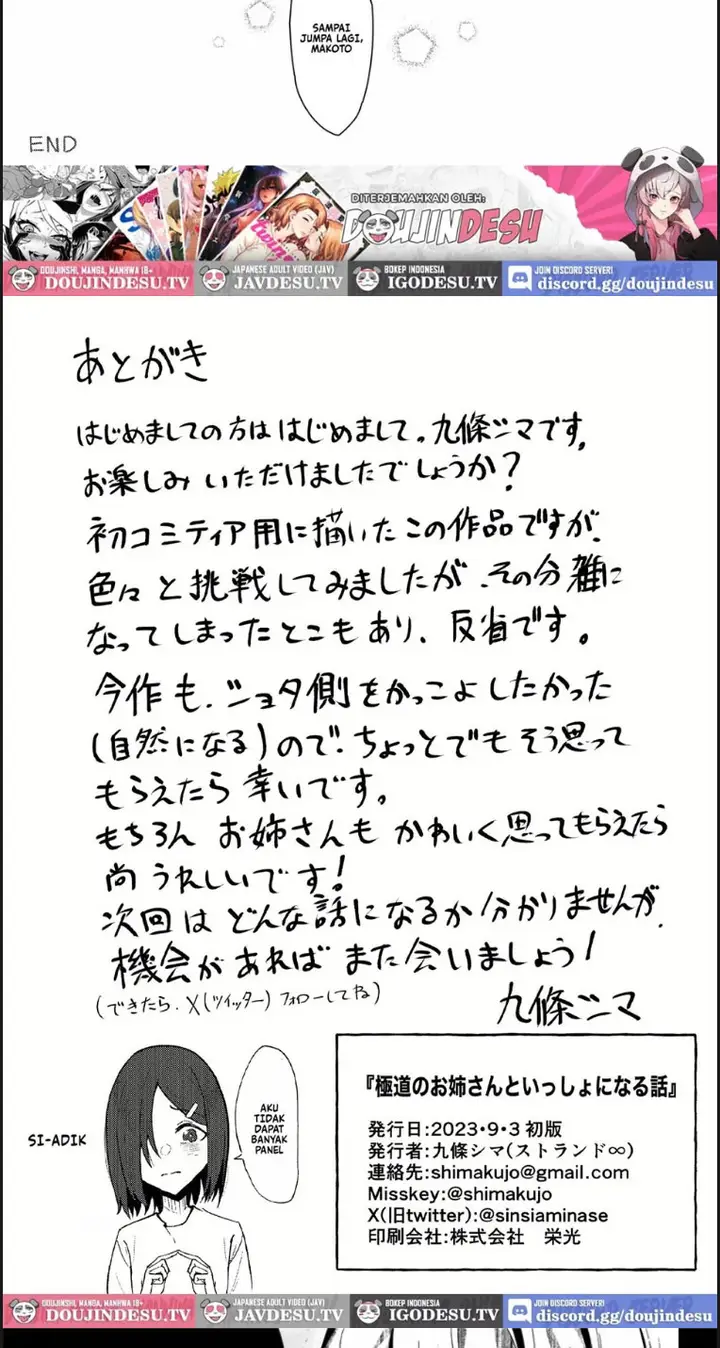 SAMPAI
JUMPA LAGI,
MAKOTO
END
DITERJEMAHKAN OLEH:
DOUJINDESU
DOUJINSHI, MANGA, MANHWA 18+
DOUJINDESU.TV
JAPANESE ADULT VIDEO (JAV)
JAVDESU.TV
BOKEP INDONESIA
IGODESU.TV
JOIN DISCORD SERVER!
discord.gg/doujindesu
あとがき
はじめましての方は はじめまして。九條シマです。
お楽しみ いただけましたでしょうか?
初コミティア用に描いたこの作品ですが、
色々と挑戦してみましたが、その分 雑に
なってしまったとこもあり、反省です。
今作も、ショタ側をかっこよしたかった
(自然になる)ので、ちょっとでもそう思って
もらえたら 幸いです。
もちろん お姉さんも かわいく思ってもらえたら
尚 うれしいです!
次回は どんな話になるか分かりませんが、
機会があれば また会いましょう!
(できたら、X(ツイッター) フォローしてね)
九條シマ
SI-ADIK
AKU
TIDAK
DAPAT
BANYAK
PANEL
『極道のお姉さんといっしょになる話』
発行日:2023・9・3 初版
発行者:九條シマ(ストランド∞)
連絡先:shimakujo@gmail.com
Misskey:@shimakujo
X(旧twitter):@sinsiaminase
印刷会社:株式会社 栄光
DOUJINSHI, MANGA, MANHWA 18+
DOUJINDESU.TV
JAPANESE ADULT VIDEO (JAV)
JAVDESU.TV
BOKEP INDONESIA
IGODESU.TV
JOIN DISCORD SERVER!
discord.gg/doujindesu